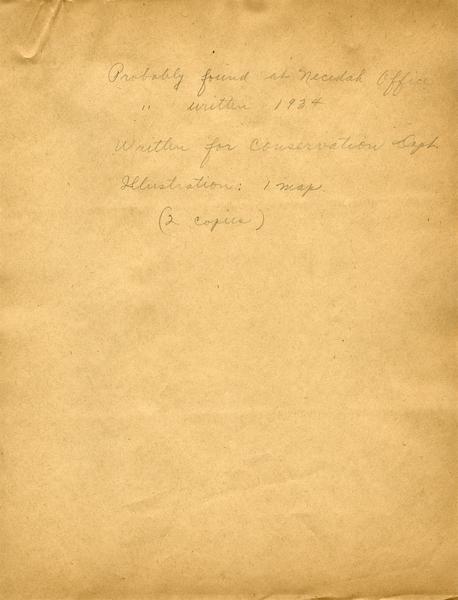 Probably found at Necedah Office
" written 1934
Written for Conservation Dept.
Illustration: 1 map.
(2 copies)